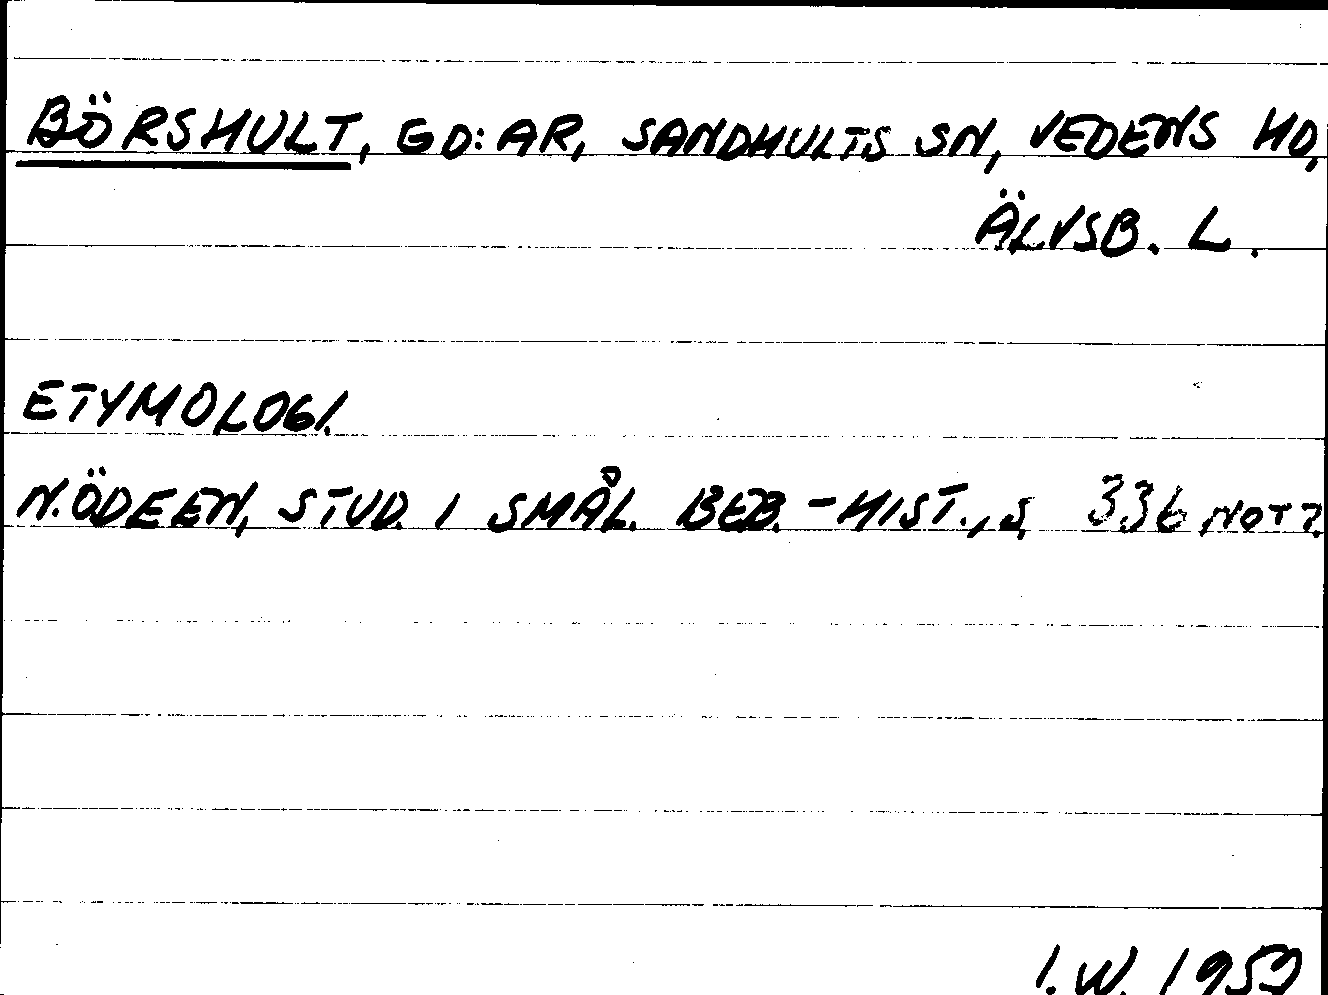 BÖRSHULT, GD:AR, SANDHULTS SN, VEDENS HD,
ÄLVSB. L.
ETYMOLOGI.
N. ÖDEEN, STUD. I SMÅL. BEB.-HIST., S. 336 NOT 7.
I. W. 1959